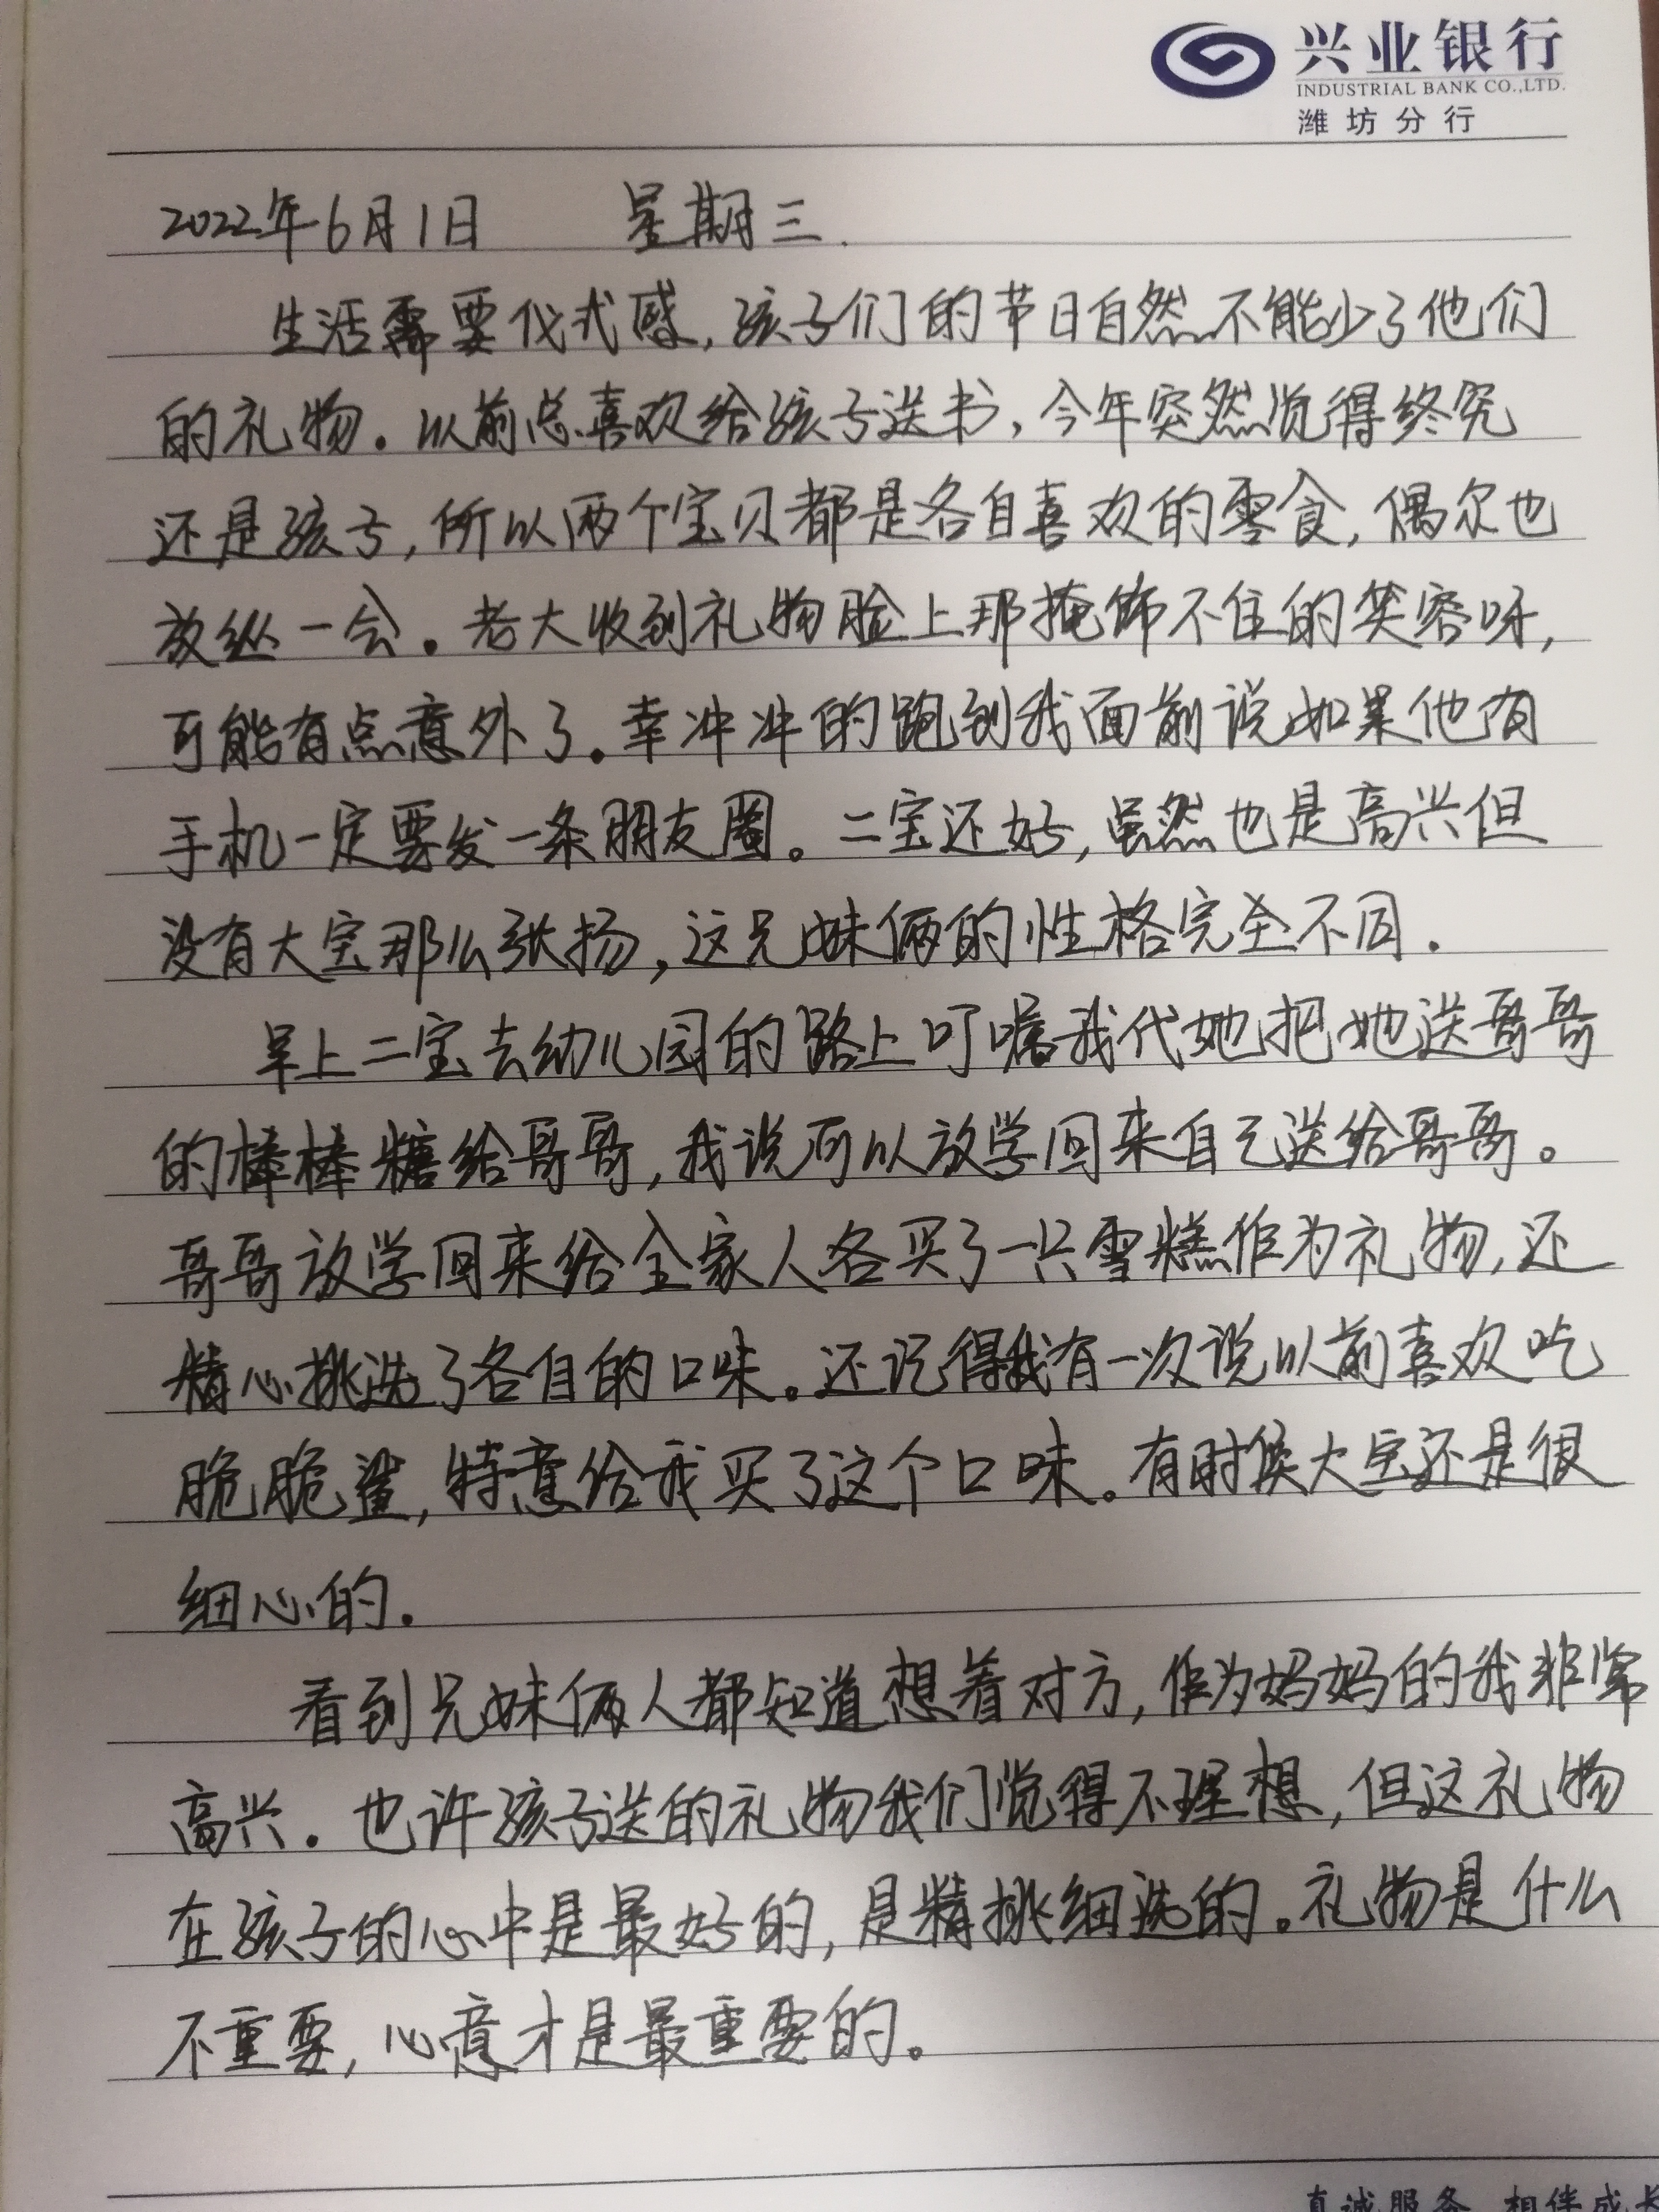 兴业银行
INDUSTRIAL BANK CO.,LTD.
潍坊分行
2022年6月1日 星期三.
生活需要仪式感,孩子们的节日自然不能少了他们
的礼物。以前总喜欢给孩子送书,今年突然觉得终究
还是孩子,所以两个宝贝都是各自喜欢的零食,偶尔也
放纵一会。老大收到礼物脸上那掩饰不住的笑容呀,
可能有点意外了。幸冲冲的跑到我面前说如果他有
手机一定要发一条朋友圈。二宝还好,虽然也是高兴但
没有大宝那么张扬,这兄妹俩的性格完全不同.
早上二宝去幼儿园的路上叮嘱我代她把她送哥哥
的棒棒糖给哥哥,我说可以放学回来自己送给哥哥。
哥哥放学回来给全家人各买了一只雪糕作为礼物,还
精心挑选了各自的口味。还记得我有一次说以前喜欢吃
脆脆鲨,特意给我买了这个口味。有时候大宝还是很
细心的.
看到兄妹俩人都知道想着对方,作为妈妈的我非常
高兴。也许孩子送的礼物我们觉得不理想,但这礼物
在孩子的心中是最好的,是精挑细选的。礼物是什么
不重要,心意才是最重要的。
真诚服务 相伴成长